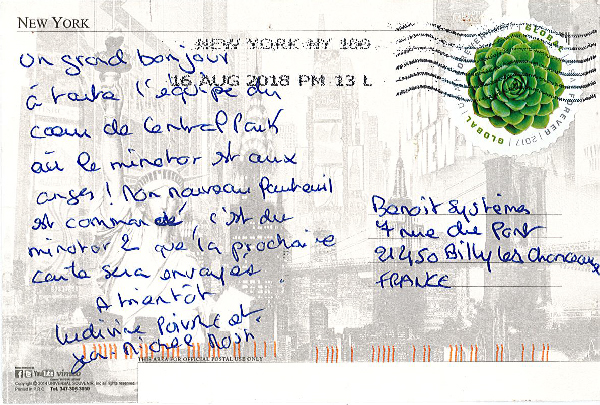 NEW YORK
NEW YORK NY 100
16 AUG 2018 PM 13 L
GLOBAL
FOREVER | 2017
GLOBAL
Un grand bonjour
à toute l'équipe du
coeur de Central Park
où le minotor est aux
anges ! Mon nouveau fauteuil
est commandé, c'est du
minotor 2 que la prochaine
carte sera envoyée
A bientôt
Ludivine et
Jean Michel
Benoît Systèmes
4 rue du Pont
21450 Billy les Chanceaux
FRANCE
THIS AREA FOR OFFICIAL POSTAL USE ONLY
You Tube vimeo
Copyright © 2014 UNIVERSAL SOUVENIR, inc all rights reserved.
Printed in P.R.C. Tel. 347-309-3650